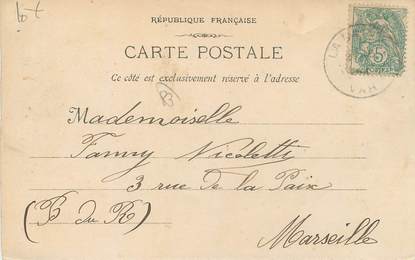 RÉPUBLIQUE FRANÇAISE
CARTE POSTALE
Ce côté est exclusivement réservé à l'adresse
B
Mademoiselle
Fanny Nicoletti
3 rue de la Paix
(B du R)
Marseille
5
VAR